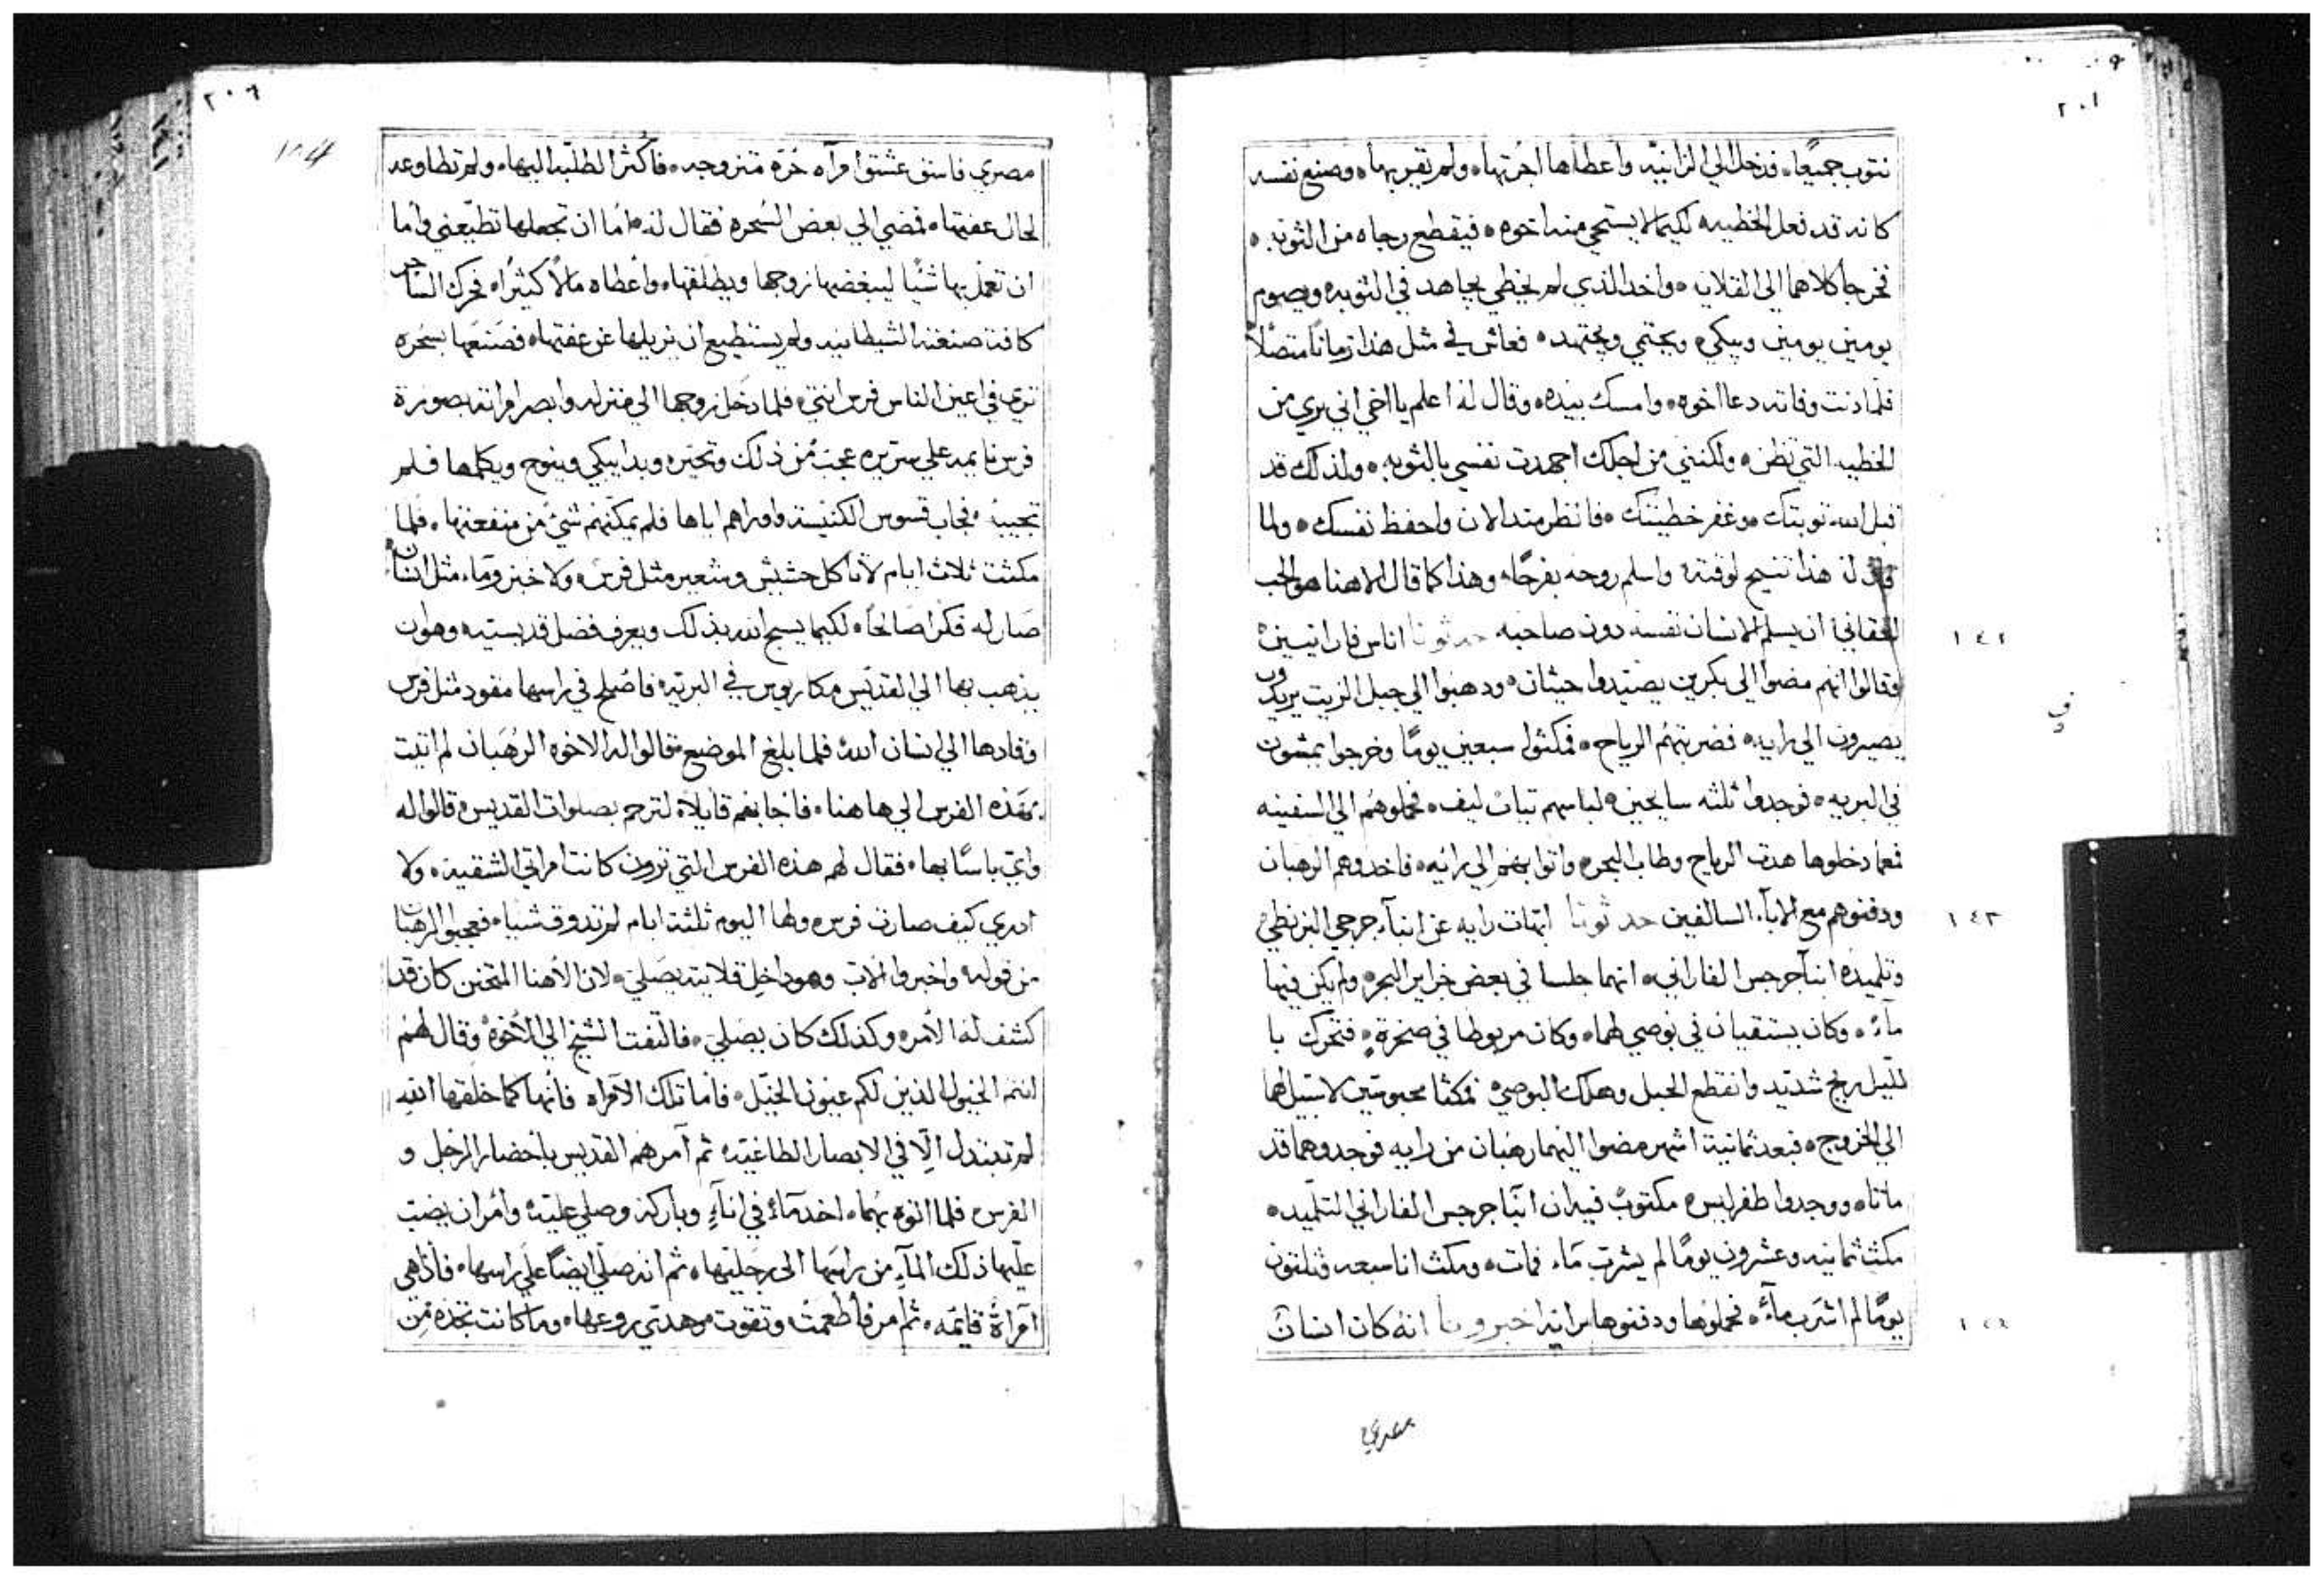 ٢٠١
نتوب جميعًا، فدخل الي الزانيه واعطاها اجرتها، ولم يقربها، وصنع نفسه
كانه قد فعل الخطيه لكيما لا يستحي منه اخوه، فيقطع رجاه من التوبه،
فخرجا كلاهما الى القلايه، واخد الذي لم يخطي يجاهد في التوبه ويصوم
يومين يومين ويبكي، ويجتهد، فعاش في مثل هذا زمانًا متصلًا
فلما دنت وفاته دعا اخوه، وامسك بيده، وقال له اعلم يا اخي اني بري من
الخطيه التي تظن، ولكنني من اجلك اجهدت نفسي بالتوبه، ولذلك قد
قبل الله توبتك، وغفر خطيتك، فانظر مند الان واحفظ نفسك، ولما
قال له هذا تنيح لوقته واسلم روحه بفرحًا، وهذا كما قال الاهنا هو الحب
الحقاني ان يسلم الانسان نفسه دون صاحبه حدثونا اناس فارانيين
١٤٢
وقالوا انهم مضوا الى بكرين يصتيدوا حيتان، ودهبوا الي جبل الزيت يريدون
يصيرون الى رايه، فضربتهم الرياح، فمكثوا سبعين يومًا وخرجوا يمشون
في البريه، فوجدوا ثلثه سايحين لباسهم تياب ليف، فحملوهم الى السفينه
فعما دخلوها هدت الرياح وطاب البحر، واتوا بهم الي رايه، فاخدوهم الرهبان
ودفنوهم مع الاباء السالفين حدثونا ابهات رايه عن انبا جرجي البزنطي
١٤٣
وتلميده انبا جرجس الفاراني، انهما جلسا في بعض جزاير البحر، ولم يكن فيها
ماء، وكان يستقيان في بوصي لهما، وكان مربوطا في صخرة، فتحرك با
لليل ريح شديد وانقطع الحبل وهلك البوصي، فمكثا محبوسين لا سبيل لها
الي الخروج، فبعد ثمانية اشهر مضوا اليهما رهبان من رايه فوجدوهما قد
ماتا، ووجدوا طفرايس مكتوب فيه ان انبا جرجس الفاراني التلميد،
مكث ثمانيه وعشرون يومًا لم يشرب ماء فمات، ومكث انا سبعه وثلثون
يومًا لم اشرب ماء، فحملوها ودفنوها برايه اخبرونا انه كان انسان
١٤٤
مصري
٢٠٢
مصري فاسق عشق امراه حره متزوجه، فاكثر الطلبه اليها، ولم تطاوعه
لحال عفتها، فمضي الي بعض السحره فقال له، اما ان تجعلها تطيعني واما
ان تعمل بها شيًا ليبغضها زوجها ويطلقها، واعطاه مالًا كثيرًا، فحرك الساحر
كافة صنعته الشيطانيه ولم يستطيع ان يزيلها عن عفتها، فصنعها بسحره
تري في اعين الناس فرس انتي، فلما دخل زوجها الي منزله وابصر امراته بصورة
فرس نايمه علي سريره عجب من ذلك وتحير، وبدا يبكي وينوح ويكلمها فلم
تجيبه، فجاب قسوس الكنيسه واوراهم اياها فلم يمكنهم شي من منفعتها، فلما
مكثت ثلاث ايام لا تاكل حشيش وشعير مثل فرس، ولا خبز وماء مثل انسان
صار له فكرا صالحًا، لكيما يسبح الله بذلك ويعرف فضل قديسيه وهو ان
يذهب بها الي القديس مكاريوس في البريه، فاصلح في راسها مقود مثل فرس
وقادها الي انسان الله، فلما بلغ الموضع قالوا له الاخوه الرهبان لم اتيت
بهذه الفرس الي ها هنا، فاجابهم قايلا، لترحم بصلوات القديس، قالوا له
واي باسًا بها، فقال لهم هذه الفرس التي ترون كانت امراتي الشقيه، ولا
ادري كيف صارت فرس، ولها اليوم ثلثة ايام لم تدوق شيا، فعجبوا الرهبان
من قوله واخبروا الاب وهو داخل قلايته يصلي، لان الاهنا المتحنن كان قد
كشف له الامر، وكذلك كان يصلي، فالتفت الشيخ الي الاخوه وقال لهم
انتم الخيول الذين لكم عيون الخيل، فاما تلك الامراه فانها كما خلقها الله
لم تبتدل الا في الابصار الطاغيه، ثم امرهم القديس باحضار الرجل و
الفرس، فلما اتوه بهما، اخد ماء في اناء وباركه وصلي عليه، وامر ان يصب
عليها ذلك الماء من راسها الى رجليها، ثم انه صلى ايضًا على راسها، فاذ هي
امراة قايمه، ثم امر فاطعمت وتقوت وهدي روعها، وما كانت تجده من